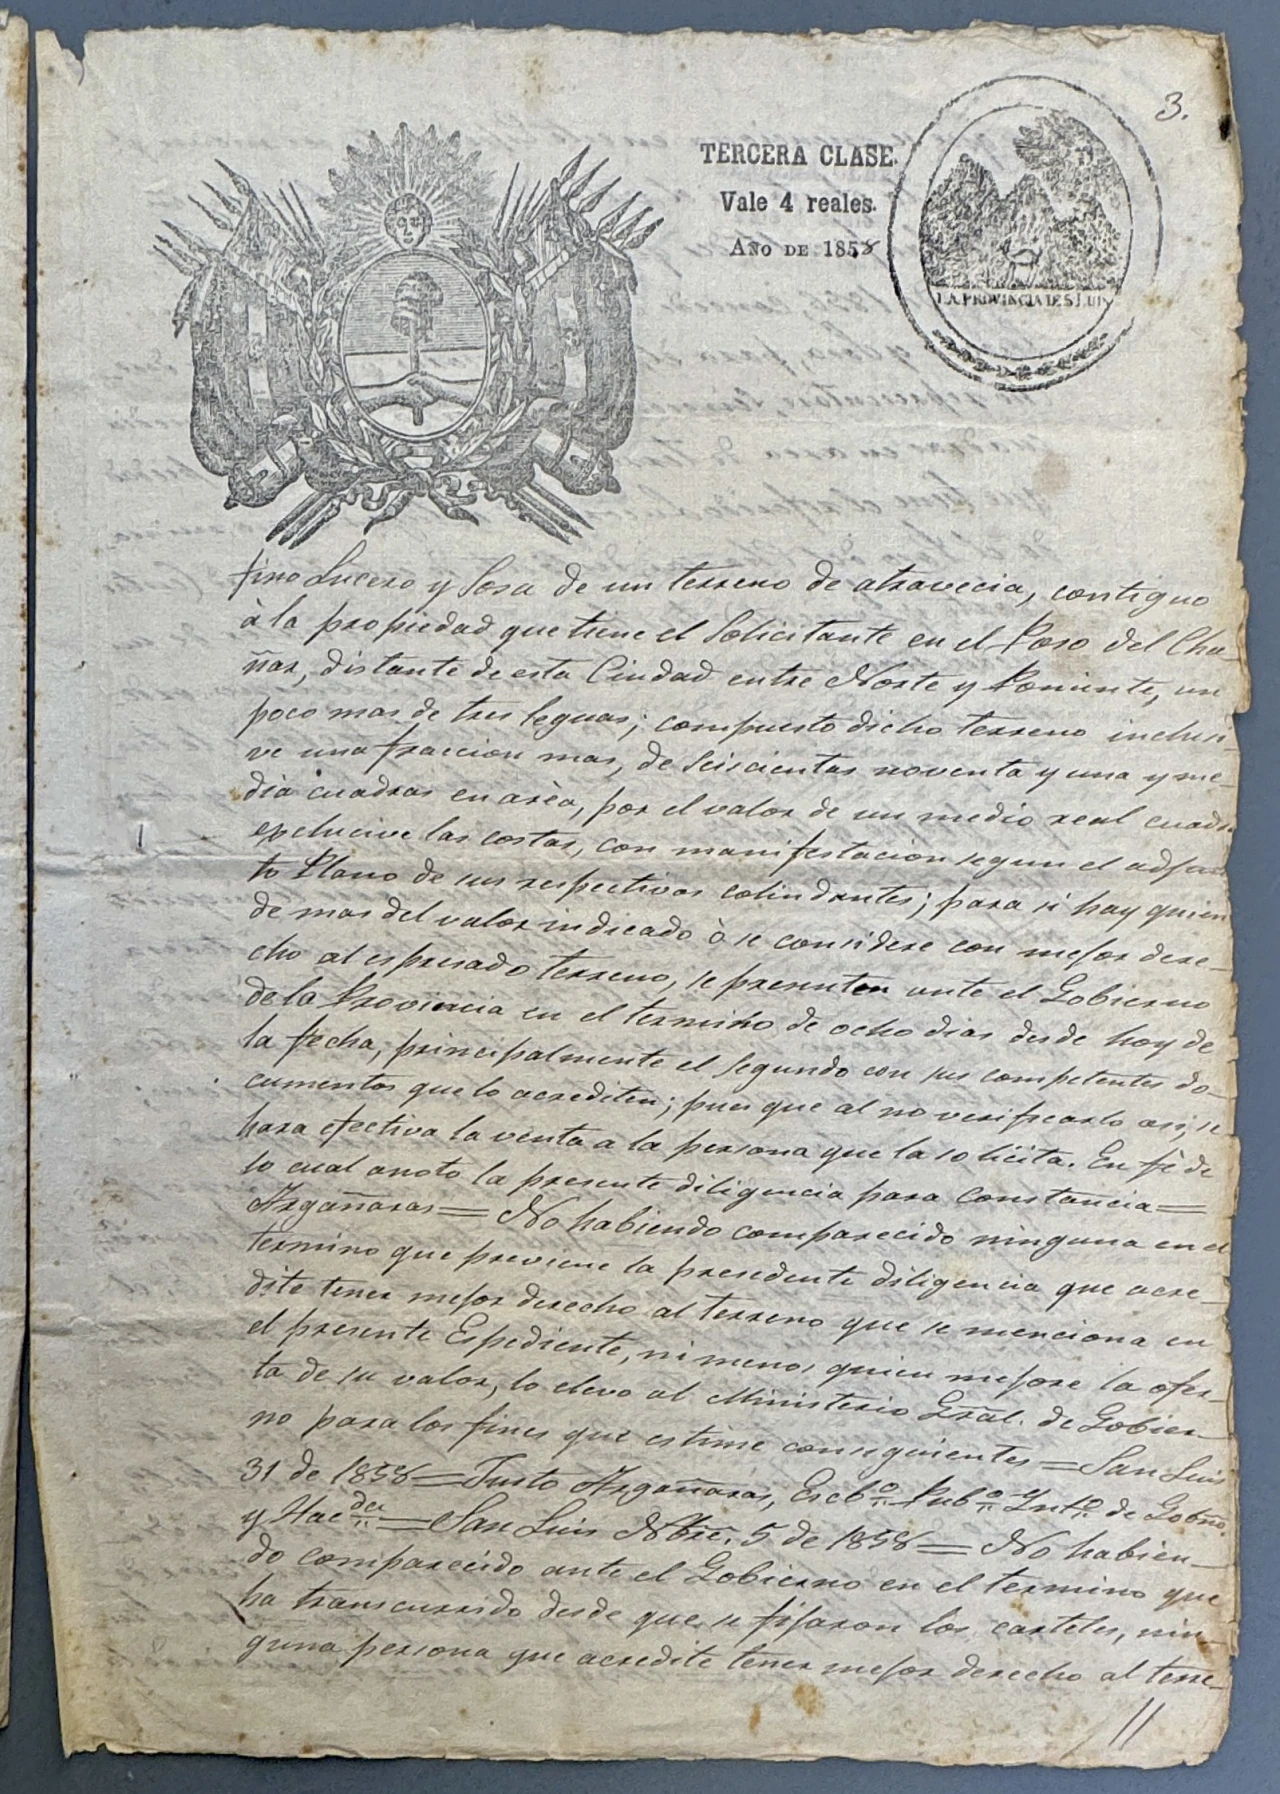 3.
TERCERA CLASE.
Vale 4 reales.
AÑO DE 1858
LA PROVINCIA DE S. LUIS
fino Lucero y Sosa de un terreno de atravecia, contiguo
à la propiedad que tiene el Solicitante en el Poso del Cha-
ñar, distante de esta Ciudad entre Norte y Poniente, un
poco mas de tres leguas; compuesto dicho terreno inclusi-
ve una fraccion mas, de Seiscientas noventa y una y me-
dia cuadras en arèa, por el valor de un medio real cuadra
esclucive las costas, con manifestacion segun el adjun
to Plano de sus respectivos colindantes; para si hay quien
de mas del valor indicado ò se considere con mejor dere-
cho al espresado terreno, se presenten ante el Gobierno
de la Provincia en el termino de ocho dias desde hoy de
la fecha, principalmente el Segundo con sus competentes do-
cumentos que lo acrediten; pues que al no verificarlo asi, se
hara efectiva la venta a la persona que la solicita. En fè de
lo cual anoto la presente diligencia para constancia=
Argañaras= No habiendo comparecido ninguna en el
termino que previene la presedente diligencia que acre-
dite tener mejor derecho al terreno que se menciona en
el presente Espediente, ni menos quien mejore la ofer-
ta de su valor, lo elevo al Ministerio Gral. de Gobier-
no para los fines que estime consiguientes= San Luis
31 de 1858= Justo Argañaras, Escbº. Pubº. Yntº. de Gobño.
y Hacda.= San Luis Nbre. 5 de 1858= No habien-
do comparecido ante el Gobierno en el termino que
ha transcurrido desde que se fijaron los carteles, nin-
guna persona que acredite tener mejor derecho al terre-
//